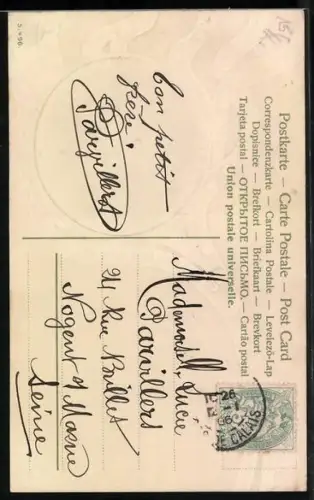 5.490.
Postkarte – Carte Postale – Post Card
Correspondenzkarte – Cartolina Postale – Levelező-Lap
Dopisnice – Brefkort – Briefkaart – Brevkort
Tarjeta postal – ОТКРЫТОЕ ПИСЬМО. – Cartão postal
Union postale universelle.
ton petit
frère
Parvillers
Mademoiselle Lucie
Parvillers
21 Rue
Nogent s/ Marne
Seine
CALAIS